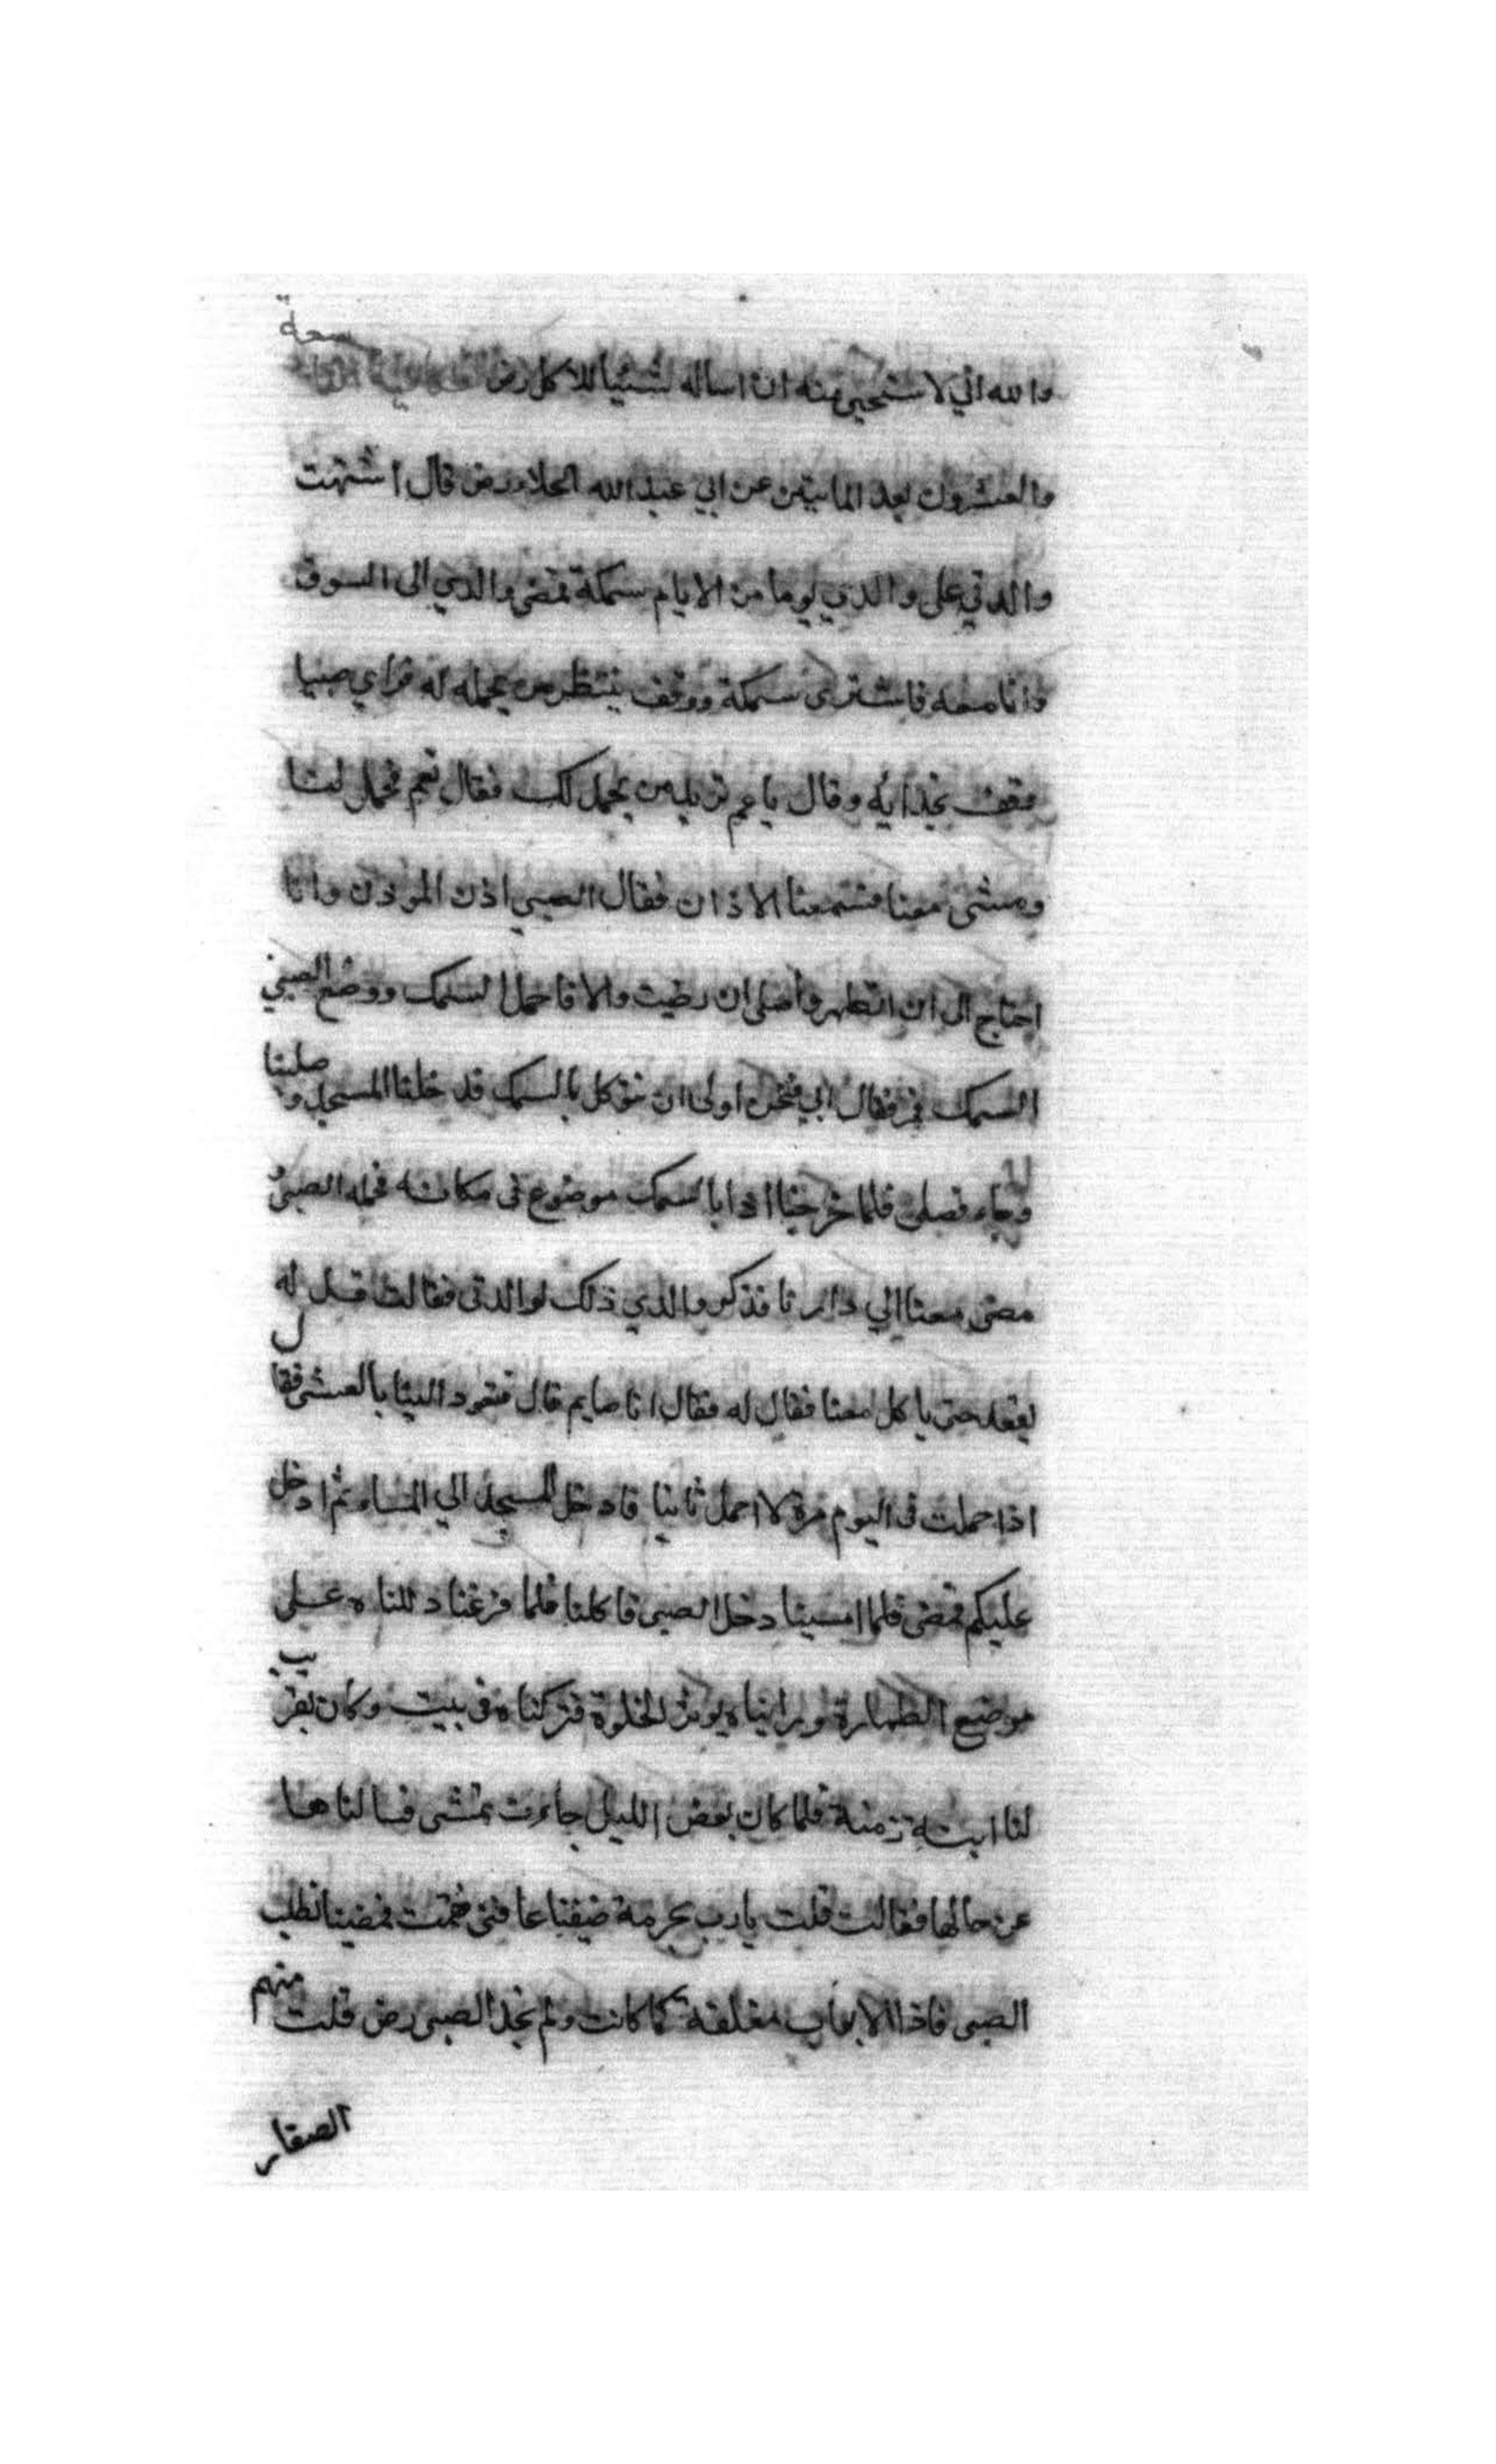 والله اني لاستحيي منه ان اساله شيئا للاكل رض الحكاية التاسعة
والعشرون بعد المايتين عن ابي عبد الله الجلاء رض قال اشتهت
والدتي على والدي يوما من الايام سمكة فمضى والدي الى السوق
وانا معه فاشترى سمكة ووقف ينتظر من يحمله له فراي صبيا
وقف بحذايه وقال يا عم تريد من يحمل لك فقال نعم فحمل لنا
ومشى معنا فسمعنا الاذان فقال الصبي اذن الموذن وانا
احتاج الى ان اتطهر واصلى ان رضيت والا فاحمل السمك ووضع الصبي
السمك فمر فقال ابي فنحن اولى ان نتوكل بالسمك فدخلنا المسجد وصلينا
وجاء فصلى فلما خرجنا اذا بالسمك موضوع في مكانه فحمله الصبي
مضى معنا الي دارنا فذكر والدي ذلك لوالدتي فقالت قل له
يقعد حتى ياكل معنا فقال له فقال انا صايم قال فتعود الينا بالعشى فقال
اذا حملت في اليوم مرة لا احمل ثانيا فادخل المسجد الي المساء ثم ادخل
عليكم فمضى فلما امسينا دخل الصبى فاكلنا فلما فرغنا دللناه على
موضع الطهارة ورايناه يوثر الخلوة فتركناه في بيت وكان بقريب
لنا ابنة زمنة فلما كان بعض الليل جاءت تمشى فسالناها
عن حالها فقالت قلت يا رب بحرمة ضيفنا عافني فقمت فمضينا نطلب
الصبى فاذا الابواب مغلقة كما كانت ولم نجد الصبى رض قلت منهم
الصغار